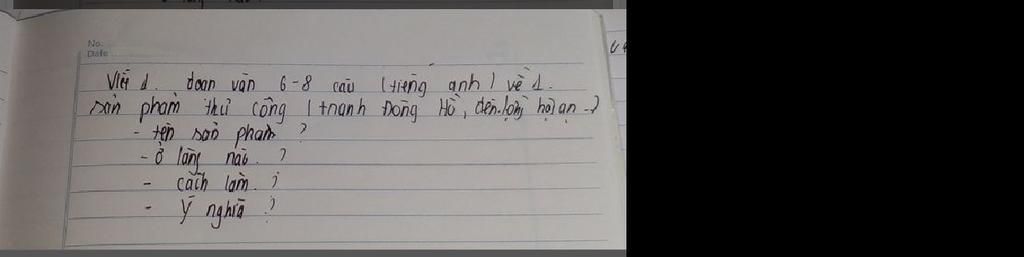 No.
Date
Viết 1 đoạn văn 6-8 câu (tiếng anh) về 1
sản phẩm thủ công (tranh Đông Hồ, đèn lồng hội an -)
- tên sản phẩm ?
- ở làng nào. ?
- cách làm. ?
- Ý nghĩa ?